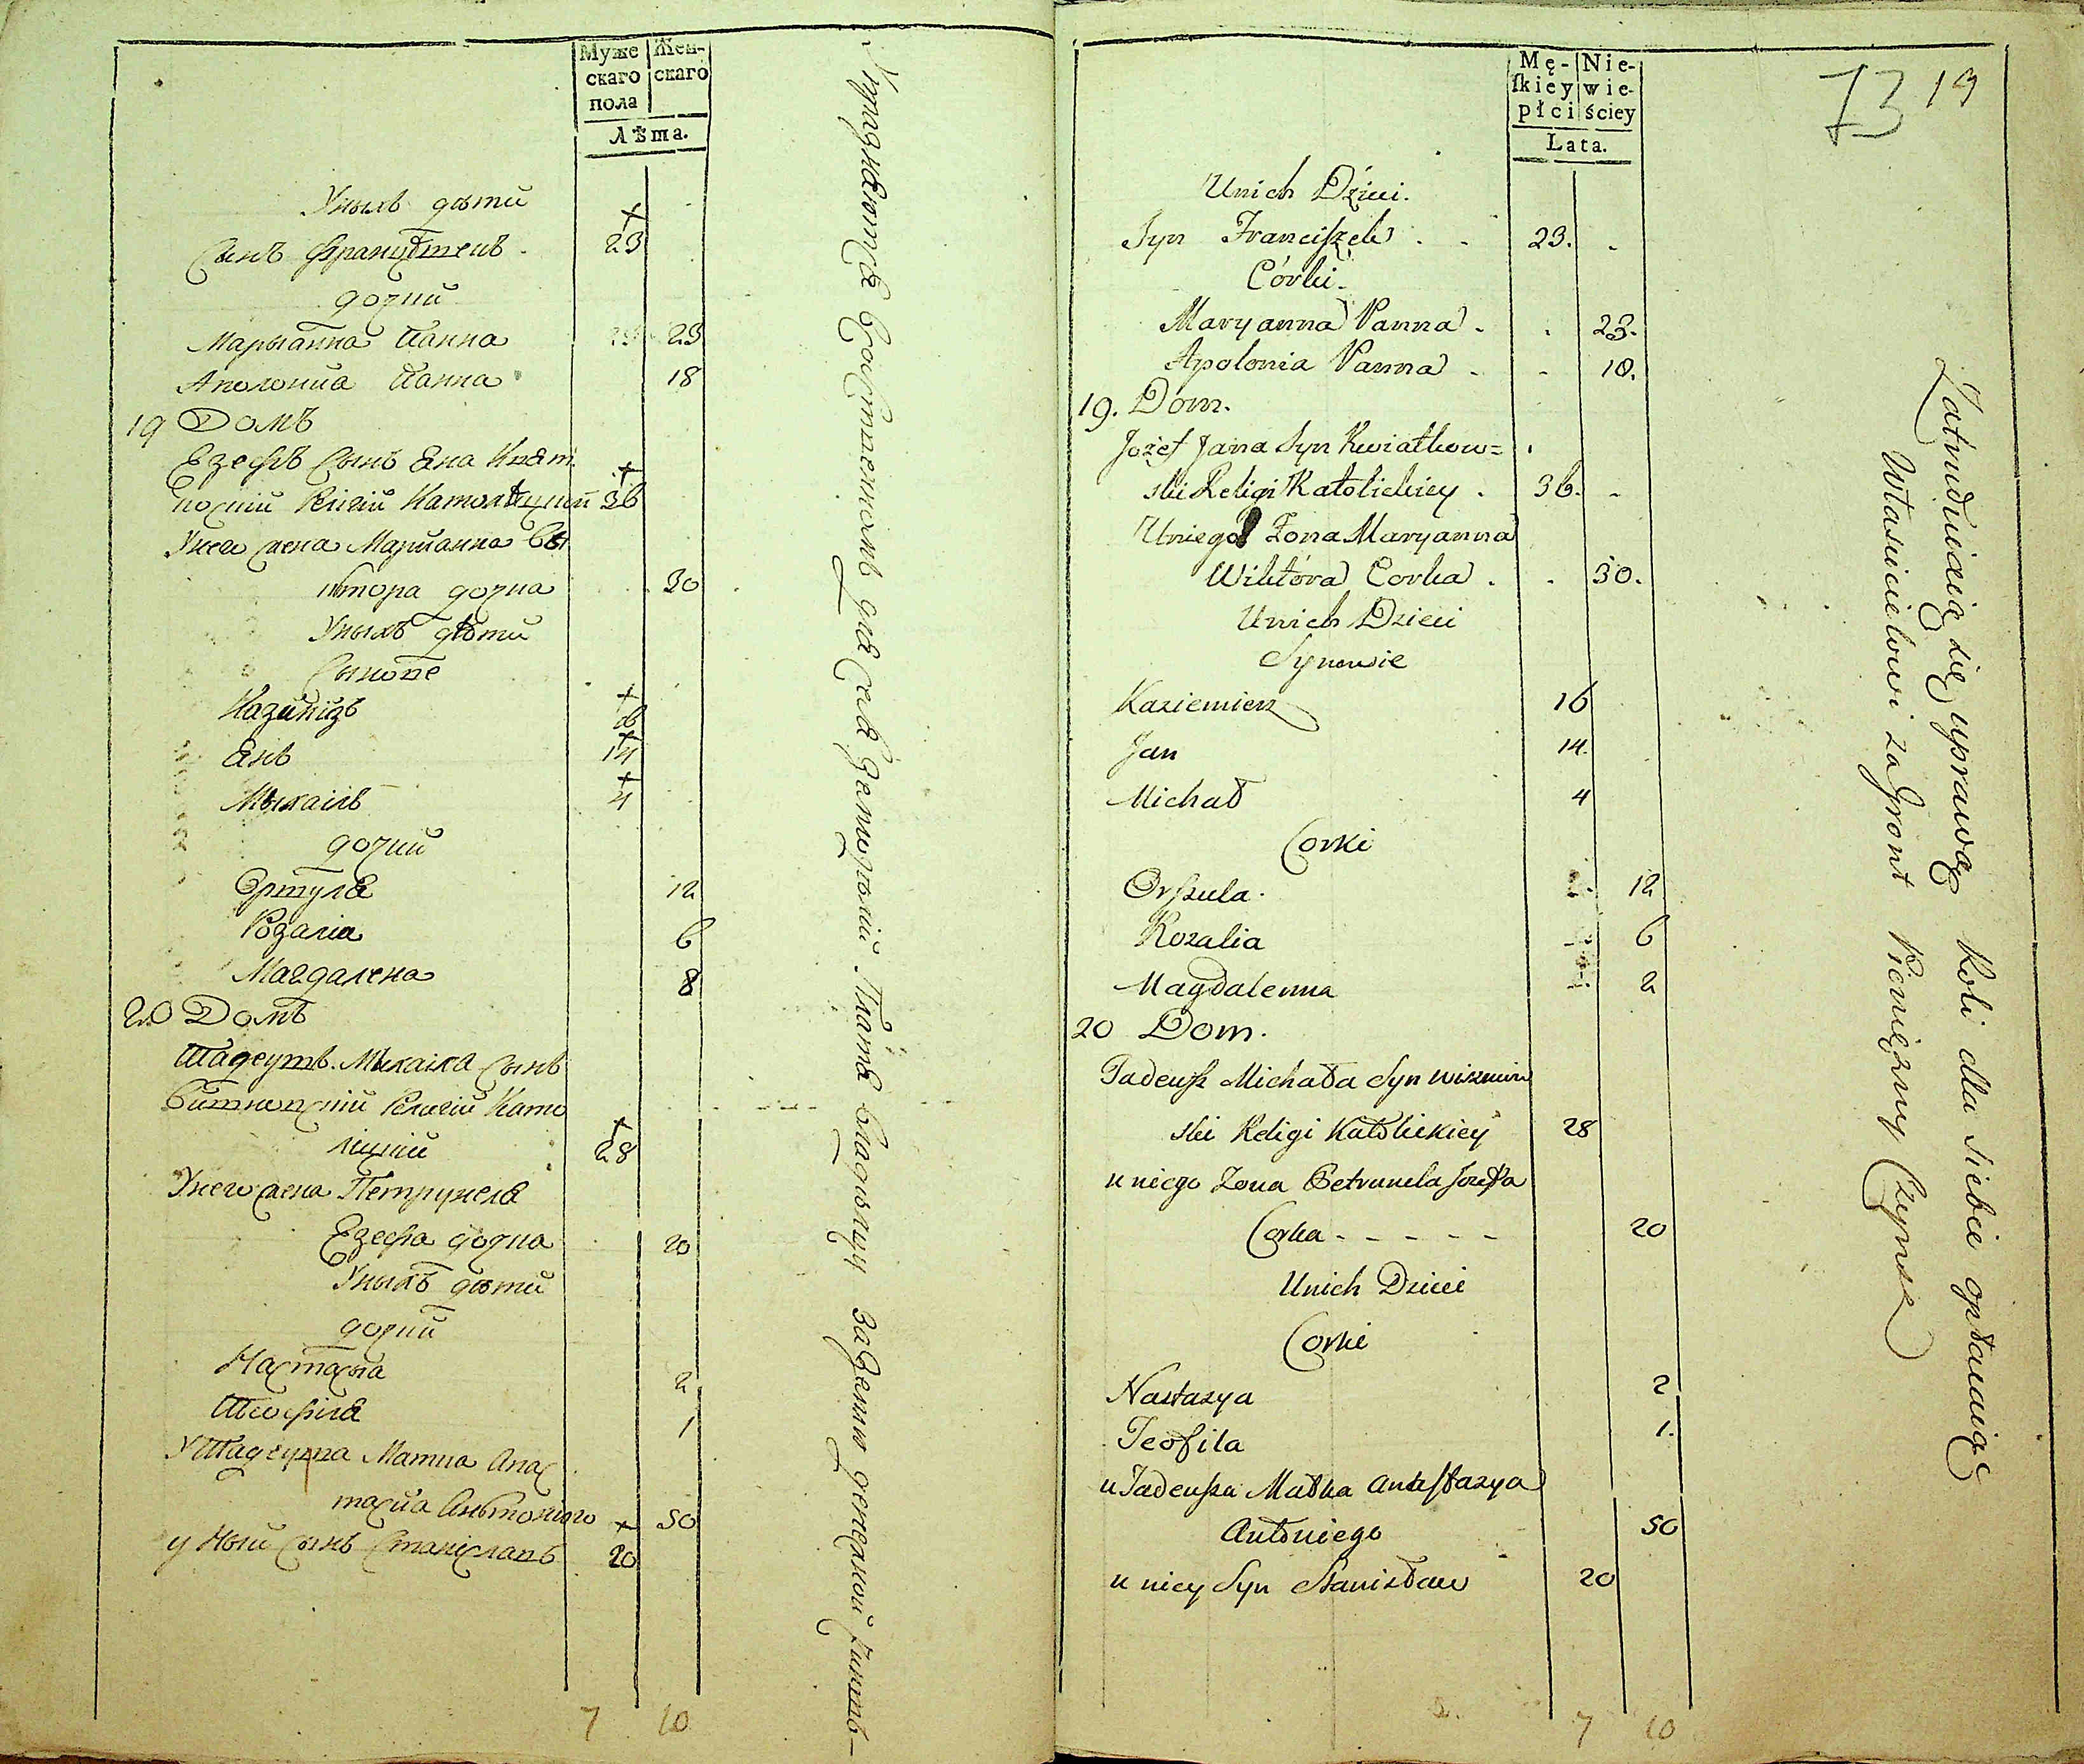 Муже Жен-
скаго скаго
пола
Лѣта.
Уныхъ дѣти
Сынъ Францѣшекъ 23
дочки
Марыанна Панна 23
Аполониа Панна 18
19 Домъ
Езефъ Сынъ Яна Квят
ковскій Религіи Католѣцкий 36
Унего жена Марианна Вы
ктора дочка 30
Уныхъ дѣти
Сынове
Казимѣзъ 16
Янъ 14
Мыхаилъ 4
дочки
Оршуля 12
Розалиа 6
Магдалена 8
20 Домъ
Тадеушъ Мыхаила Сынъ
Религіи Като
лицкій 28
Унего жена Петрунеля
Езефа дочка 20
Уныхъ дѣти
дочки
Настасыа 2
Теофиля 1
У Тадеуша Матка Анас
тасиа Анътониго 50
у Ный сынъ Станиславъ 20
7 10
Упражняются для себя Платя Владѣлцу За Землю денежной чиншъ
73 19
Mę- Nie-
ſkiey wie-
płci ściey
Lata.
Unich Dzieci.
Syn Franciszek . . 23. .
Córki.
Maryanna Panna . . 23.
Apolonia Panna . - 18.
19. Dom.
Jozef Jana Syn Kwiatkow=
ski Religi Katolickiey . 36. .
Uniego Zona Maryanna
Wiktora Corka . . 30.
Unich Dzieci
Synowie
Kaziemierz 16
Jan 14.
Michał 4
Corki
Orszula. 12
Rozalia 6
Magdalenna 2
20 Dom.
Tadeusz Michała Syn
ski Religi Katolickiey 28
u niego Zona Petrunela Jozefa
Corka - - - - - 20
Unich Dzieci
Corki
Nastazya 2
Teofila 1.
u Tadeusza Matka Anastazya
Antoniego 50
u niey Syn Stanisław 20
7 10
Zatrudniaią się uprawą Roli dla siebie opłacaią
Właścicielowi za Gront Pieniężny Czynsz